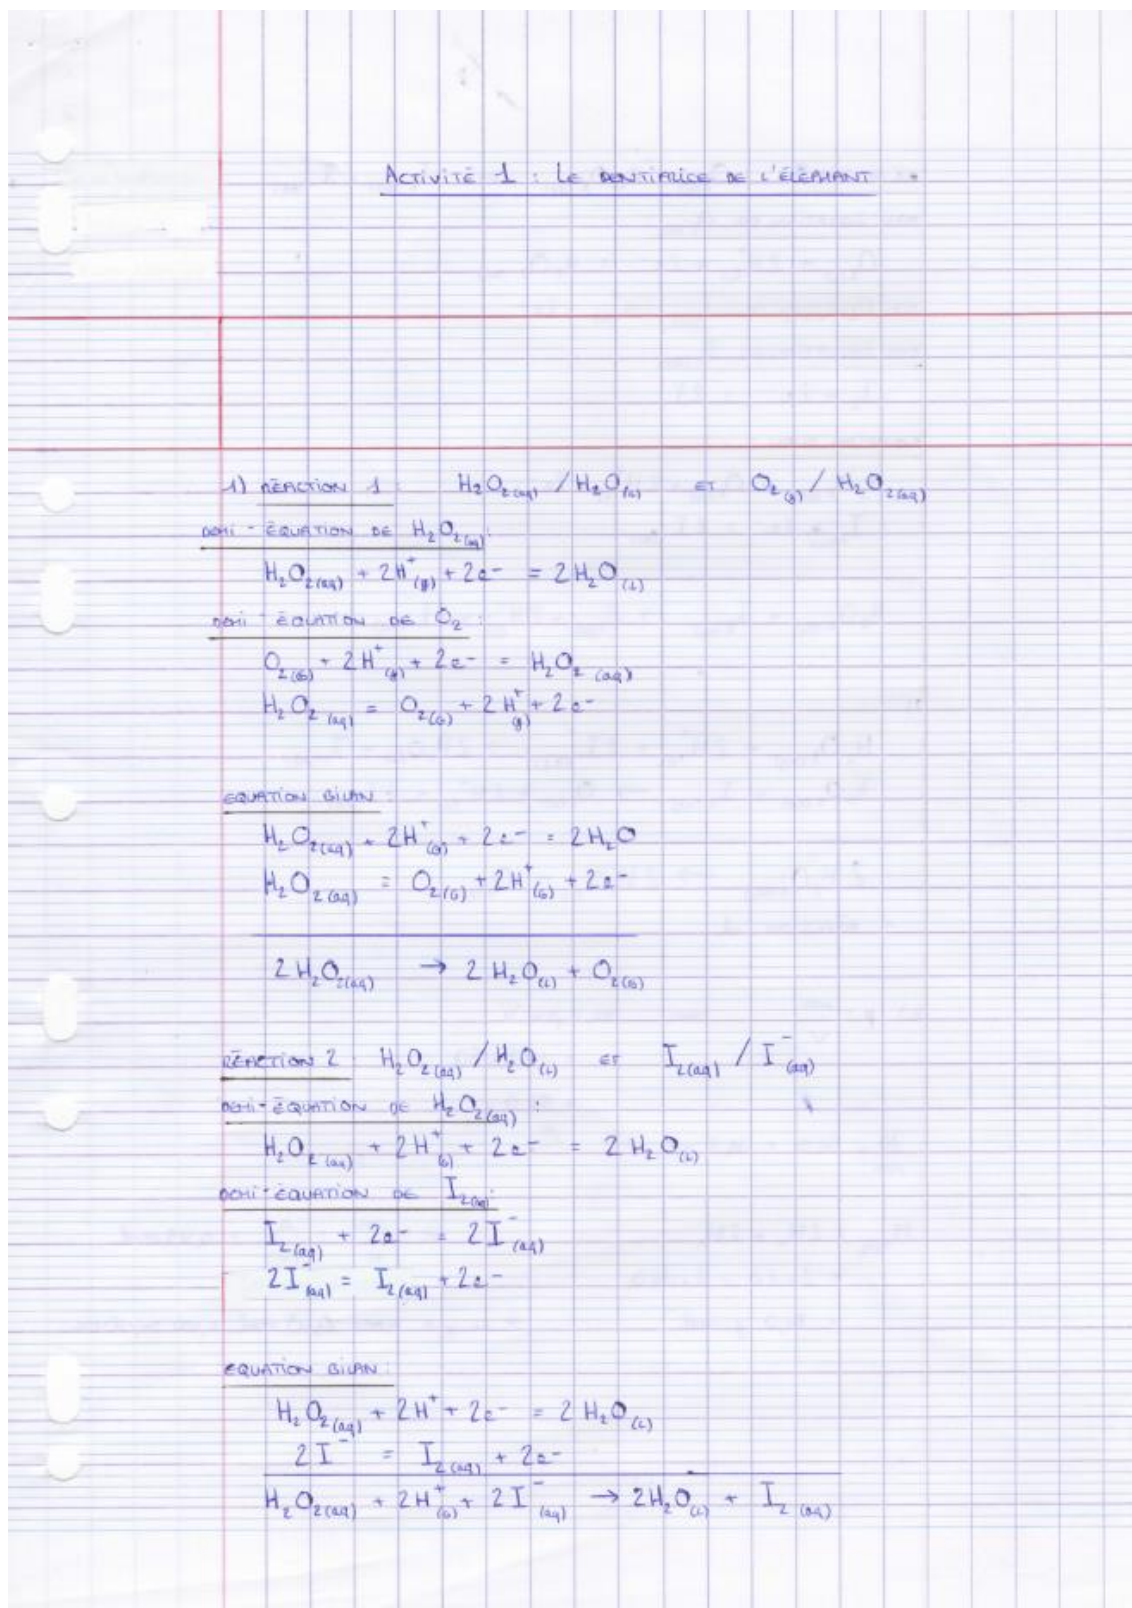 ACTIVITÉ 1 : LE DENTIFRICE DE L'ÉLÉPHANT
1) RÉACTION 1 : H₂O₂(aq) / H₂O(L) ET O₂(g) / H₂O₂(aq)
DEMI-ÉQUATION DE H₂O₂(aq) :
H₂O₂(aq) + 2H⁺(g) + 2e- = 2H₂O(L)
DEMI-ÉQUATION DE O₂ :
O₂(G) + 2H⁺(g) + 2e- = H₂O₂(aq)
H₂O₂(aq) = O₂(G) + 2H⁺(g) + 2e-
EQUATION BILAN :
H₂O₂(aq) + 2H⁺(g) + 2e- = 2H₂O
H₂O₂(aq) = O₂(G) + 2H⁺(G) + 2e-
2H₂O₂(aq) → 2H₂O(L) + O₂(G)
RÉACTION 2 H₂O₂(aq) / H₂O(L) ET I₂(aq) / I⁻(aq)
DEMI-ÉQUATION DE H₂O₂(aq) :
H₂O₂(aq) + 2H⁺(G) + 2e- = 2H₂O(L)
DEMI-ÉQUATION DE I₂(aq) :
I₂(aq) + 2e- = 2I⁻(aq)
2I⁻(aq) = I₂(aq) + 2e-
EQUATION BILAN :
H₂O₂(aq) + 2H⁺ + 2e- = 2H₂O(L)
2I⁻ = I₂(aq) + 2e-
H₂O₂(aq) + 2H⁺(G) + 2I⁻(aq) → 2H₂O(L) + I₂(aq)